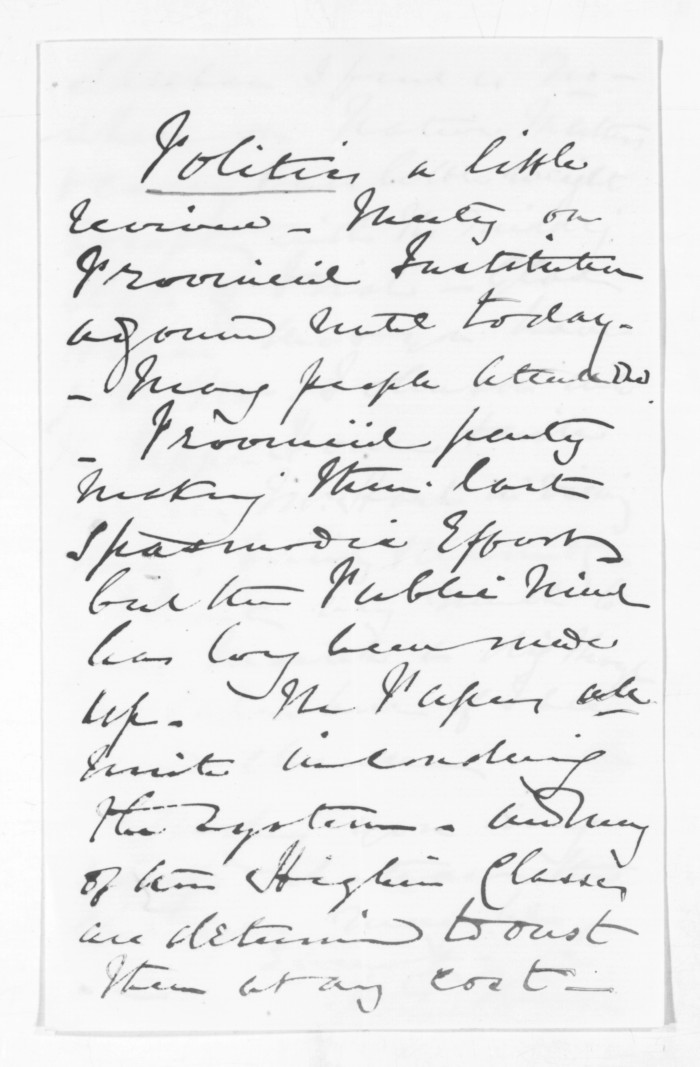 Politics a little
revived - Meeting on
Provincial Institution
adjourned until today -
- Many people attended.
- Provincial party
making their last
spasmodic Efforts
but the Public Mind
has long been made
up - The Papers all
unite in condemning
the system - and many
of the Higher Classes
are determined to oust
them at any cost -